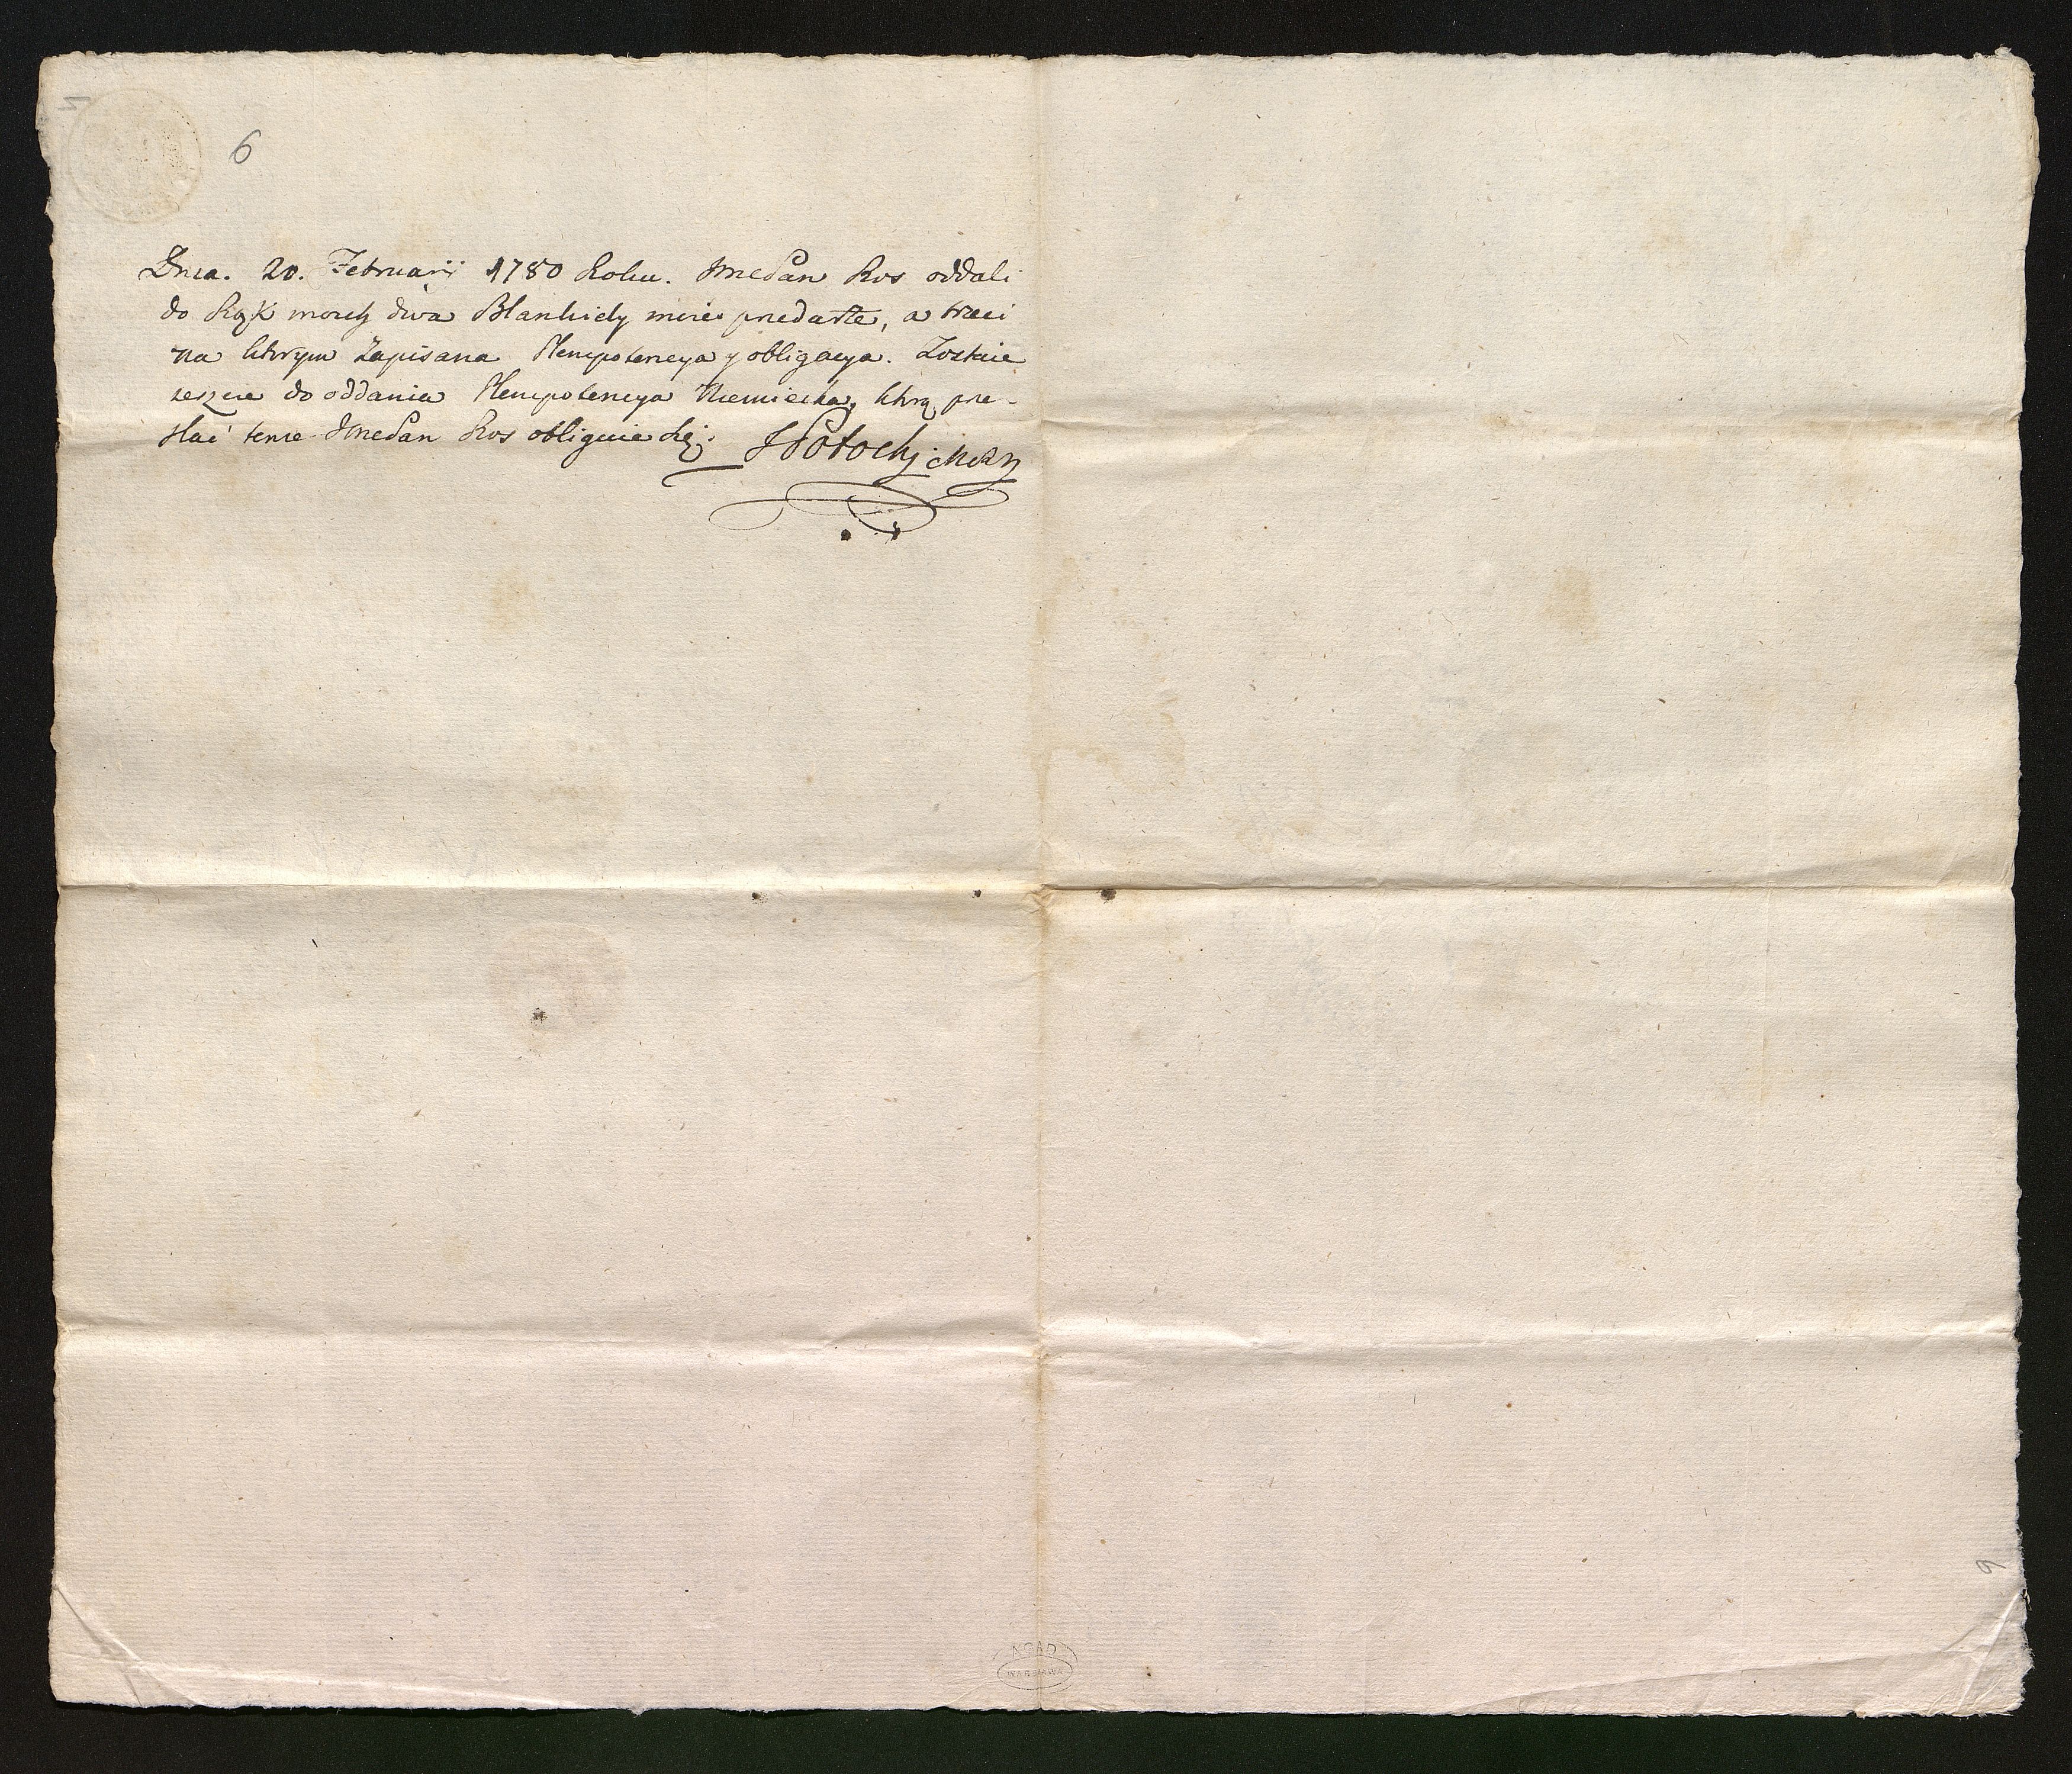 6
Dnia. 20. Februarii 1780 Roku. Jmć Pan Kos oddali
do Rąk moich dwa Blankiety mnie przedarte, a trzeci
na którym zapisana Plenipotencya y obligacya. Zostaie
ieszcze do oddania Plenipotencya Niemiecka, którą prze-
słać tenże Jmć Pan Kos obliguie się.
Potocki
AGAD
WARSZAWA
6